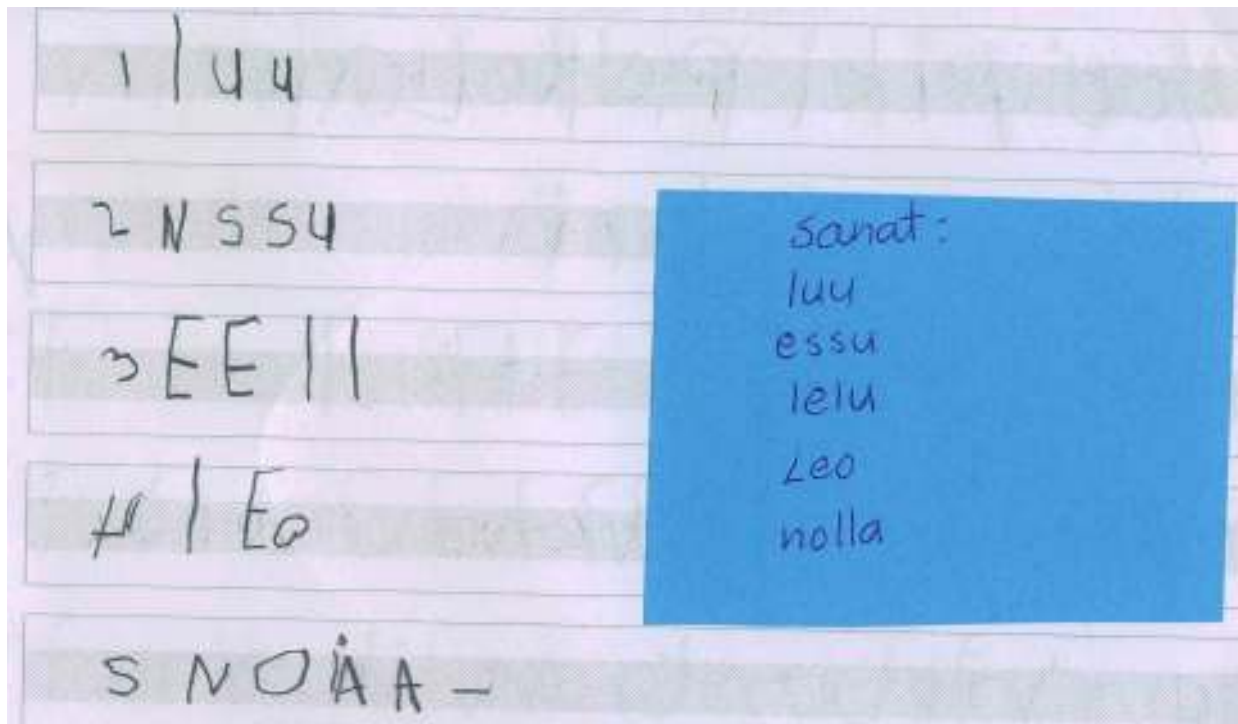 1 luu
2 NSSU
3 EEll
4 lEo
5 NOÅA-
sanat:
luu
essu
lelu
Leo
nolla